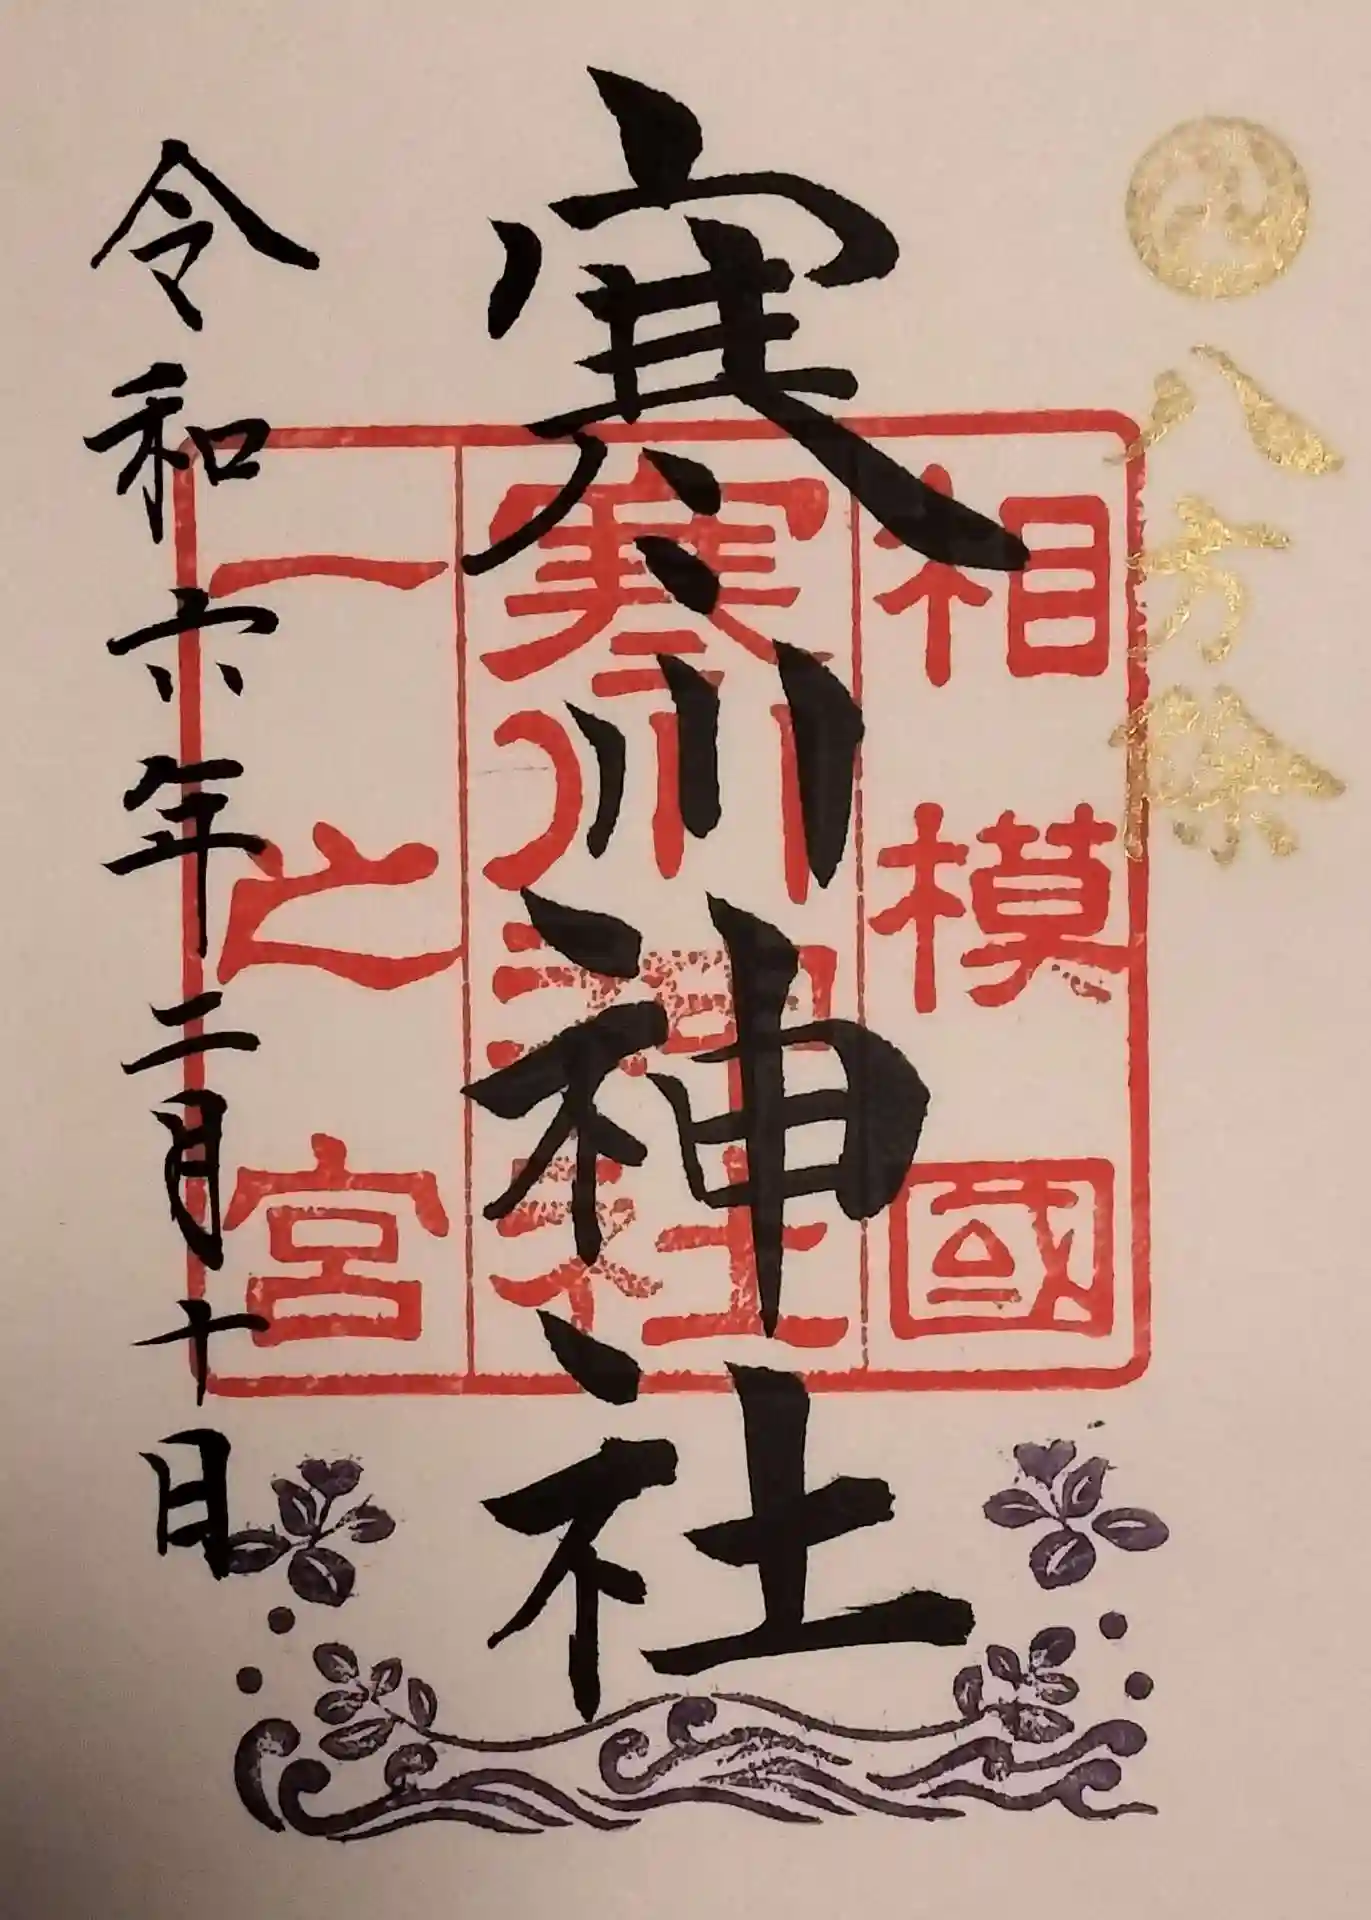 八方除
相模國
寒川神社
一之宮
寒川神社
令和六年二月十日